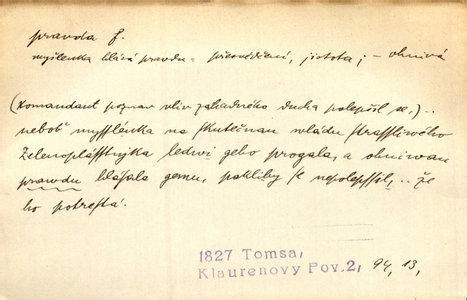 pravda f.
myšlenka hlásá pravdu = přesvědčení, jistota; – ohnivá
(Komandant poznav vliv záhadného ducha polepšil se,)..
neboť myšlénka na skutečnau wládu strasslivého
Zelenopláštnjka ledwj geho progala, a ohniwau
prawdu hlásala gemu, paklby se nepolepssil, .. že
ho potrestá.
1827 Tomsa,
Klaurenovy Pov.2, 94, 13,